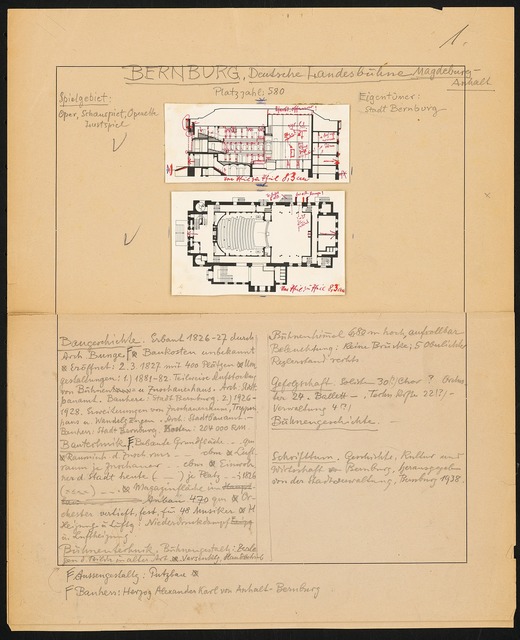 1.
BERNBURG, Deutsche Landesbühne Magdeburg-
Anhalt
Platzzahl: 580
Spielgebiet:
Oper, Schauspiel, Operette
Lustspiel
Eigentümer:
Stadt Bernburg
8,3 cm
8,3 cm
Baugeschichte: Erbaut 1826-27 durch
Arch. Bunge. F * Baukosten unbekannt
* Eröffnet: 2.3.1827 mit 400 Plätzen * Um
gestaltungen: 1) 1881-82 Teilweise
von Bühnenhaus u Zuschauerhaus. Arch: Stadt
bauamt. Bauherr: Stadt Bernburg. 2) 1926-
1928. Erweiterungen von Zuschauerraum, Treppen
haus u. Arch: Stadtbauamt.
Bauherr: Stadt Bernburg. Kosten: 204 000 RM.
Bautechnik F Bebaute Grundfläche .. qm
* Rauminh. d. Zuschauers ... cbm * Luft-
raum je Zuschauer .. cbm * Einwoh-
ner d. Stadt heute ( ) je Platz .. i. 1826
* Magazinfläche im
470 qm * Or-
chester vertieft, fest, für 48 Musiker * H
eizung u Lüftg: Niederdruckdampf
u. Luftheizung
Bühnentechnik. Bühnengestalt:
in alter Art * Versenkg,
F Aussengestaltg: Putzbau *
F Bauherr: Herzog Alexander Karl von Anhalt-Bernburg
Bühnenhimmel 6,80 m hoch, aufrollbar
Beleuchtung: Keine Brücke; 5 Oberlichter
Reglerstand rechts
Gefolgschaft Solisten 30?/Chor ? Orches
ter 24. Ballett - Techn. Dist. 22?/-
Verwaltung 4?/
Bühnengeschichte. -
Schrifttum. Geschichte, Kultur und
Wirtschaft von Bernburg, herausgegeben
von der Stadtverwaltung, Bernburg 1938.